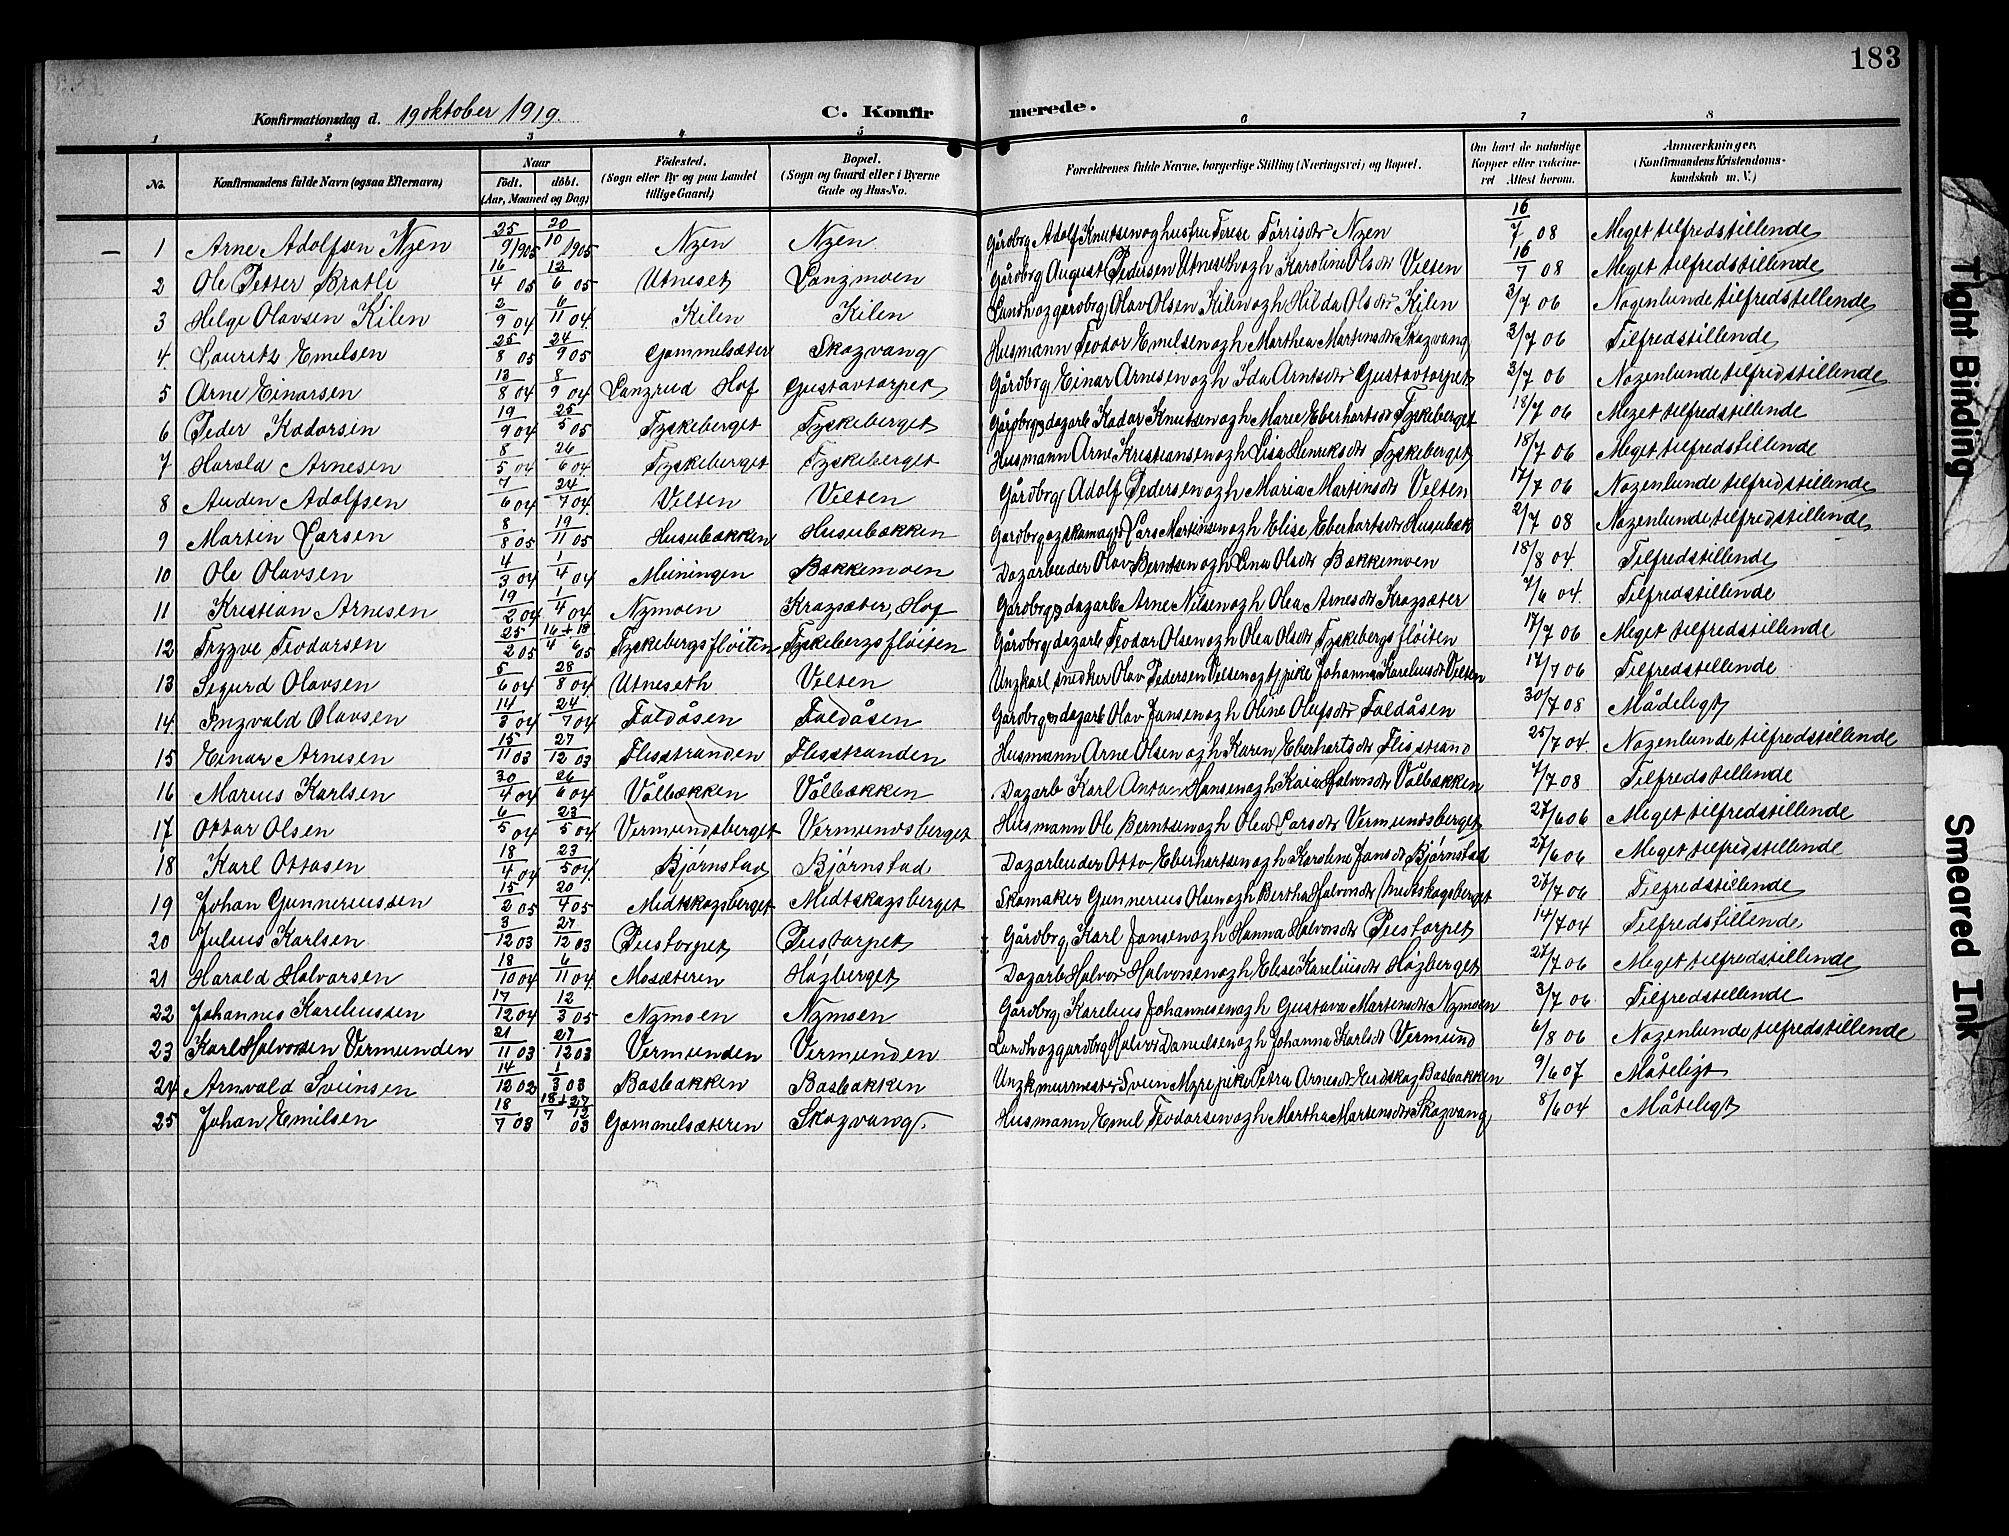 183
Konfirmationsdag d. 19 oktober 1919. C. Konfirmerede.
1 2 3 4 5 6 7 8
No. Konfirmandens fulde Navn (ogsaa Efternavn) Naar Födt. döbt. (Aar, Maaned og Dag) Födested. (Sogn eller By og paa Landet tillige Gaard) Bopæl. (Sogn og Gaard eller i Byerne Gade og Hus-No. Forældrenes fulde Navne, borgerlige Stilling (Næringsvei) og Bopæl. Om havt de naturlige Kopper eller vakcineret Attest herom. Anmærkninger. (Konfirmandens Kristendomskundskab m. V.)
1 Arne Adolfsen Nyen 25/9 1905 20/10 1905 Nyen Nyen Gårdbrg Adolf Knutsen og husfru Terese Tørrisdtr Nyen 16/7 08 Meget tilfredstillende
2 Ole Petter Bratli 16/4 05 12/6 05 Utneset Langmoen Gårdbrg August Pedersen Utneseth og h Karoline Olsdtr Velten 16/7 08 Meget tilfredstillende
3 Helge Olavsen Kilen 2/9 04 6/11 04. Kilen Kilen Landh og gardbrg Olav Olsen Kilen og h Hilda Olsdtr Kilen 3/7 06 Nogenlunde tilfredstillende
4. Lauritz Emilsen 25/8 05 24/9 05 Gammelsæter Skogvang Husmann Teodor Emilsen og h Marthea Martinsdtr Skogvang 3/7 06 Tilfredstillende
5 Arne Einarsen 13/8 04 8/9 04 Langrud Hof Gustavtorpet Gårdbrg Einar Arnesen og h Ida Arntsdtr Gustavtorpet 3/7 06 Nogenlunde tilfredstillende
6 Peder Kadorsen 19/9 04 25/5 05 Tyskeberget Tyskeberget Gårdbrg og dagarb Kador Knutsen og h Marie Eberhartsdtr Tyskeberget 18/7 06 Meget tilfredstillende
7 Harald Arnesen 8/5 04 26/6 04. Tyskeberget Tyskeberget Husmann Arne Kristiansen og h Lisa Henriksdtr Tyskeberget 18/7 06 Meget tilfredstillende
8 Auden Adolfsen 7/6 04 24/7 04. Velten Velten Gårdbrg Adolf Pedersen og h Maria Martinsdtr Velten 17/7 06 Nogenlunde tilfredstillende
9 Martin Larsen 8/8 05 19/11 05 Husubækken Husubækken Gardbrg og skomag Lars Martinsen og h Elise Eberhartsdtr Husubæk 2/7 08 Nogenlunde tilfredstillende
10 Ole Olavsen 4/3 04 1/4 04 Meiningen Bakkemoen Dagarbeider Olav Berntsen og h Lina Olsdtr Bakkemoen 18/8 04. Tilfredstillende
11 Kristian Arnesen 19/2 04 1/4 04 Nymoen Kragsæter, Hof Gardbrg og dagarb Arne Nilsen og h Olea Arnesdtr Kragsæter 7/6 04. Tilfredstillende
12 Trygve Teodorsen 25/2 05 16/4 + 18/6 05 Tyskebergsfløiten Tyskebergsfløiten Gårdbrg dagarb Teodor Olsen og h Olea Olsdtr Tyskebergsfløiten 17/7 06 Meget tilfredstillende
13 Sigurd Olavsen 5/6 04 28/8 04. Utneseth Velten Ungkarl snedker Olav Pedersen Velten og pike Johanna Kareliusdtr Velten 17/7 06 Tilfredstillende
14 Ingvald Olavsen 14/3 04 24/7 04 Faldåsen Faldåsen Gårdbrg og dagarb Olav Jansen og h Oline Olufsdtr Faldåsen 30/7 08 Mådeligt
15 Einar Arnesen 15/11 03 27/12 03 Flisstranden Flisstranden Husmann Arne Olsen og h Karen Eberhartsdtr Flisstrand 25/7 04. Nogenlunde tilfredstillende
16 Marius Karlsen 30/4 04 26/6 04. Vålbækken Vålbækken Dagarb Karl Anton Hansen og h Kaia Halvorsdtr Vålbækken 7/7 08 Tilfredstillende
17 Ottar Olsen 6/5 04 23/5 04. Vermundsberget Vermundsberget Husmann Ole Berntsen og h Olea Larsdtr Vermundsberget 27/6 06 Meget tilfredstillende
18 Karl Ottosen 18/4 04 23/5 04. Bjørnstad Bjørnstad Dagarbeider Otto Eberhartsen og h Karoline Jansdtr Bjørnstad 27/6 06 Meget tilfredstillende
19 Johan Gunneriussen 15/2 05 20/4 05 Midtskogsberget Midtskogsberget Skomaker Gunnerius Olsen og h Bertha Halvorsdtr Midtskogsberget 27/7 06 Tilfredstillende
20 Julius Karlsen 3/12 03 27/12 03 Pustorpet Pustorpet Gårdbrg Karl Jansen og h Hanna Halvorsdtr Pustorpet 14/7 04 Tilfredstillende
21 Harald Halvorsen 18/10 04 6/11 04 Mosæteren Høgberget Dagarb Halvor Halvorsen og h Elise Kareliusdtr Høgberget 27/7 06 Meget tilfredstillende
22 Johannes Kareliussen 17/12 04 12/3 05 Nymoen Nymoen Gårdbrg Karelius Johannesen og h Gustava Martinsdtr Nymoen 3/7 06 Tilfredstillende
23 Karl Halvorsen Vermunden 21/11 03 27/12 03 Vermunden Vermunden Landh og gardbrg Halvor Danielsen og h Johanna Karlsdtr Vermund 6/8 06 Nogenlunde tilfredstillende
24 Arnvald Sveinsen 14/12 02 1/3 03 Basbakken Basbakken Ungk murmester Svein Myre pike Petra Arnesdtr Eidskog Basbakken 9/6 07 Måteligt
25 Johan Emilsen 18/7 03 18/7 + 27/12 03 Gammelsæteren Skogvang Husmann Emil Teodorsen og h Martha Martinsdtr Skogvang 8/6 04 Måteligt
Tight Binding
Smeared Ink